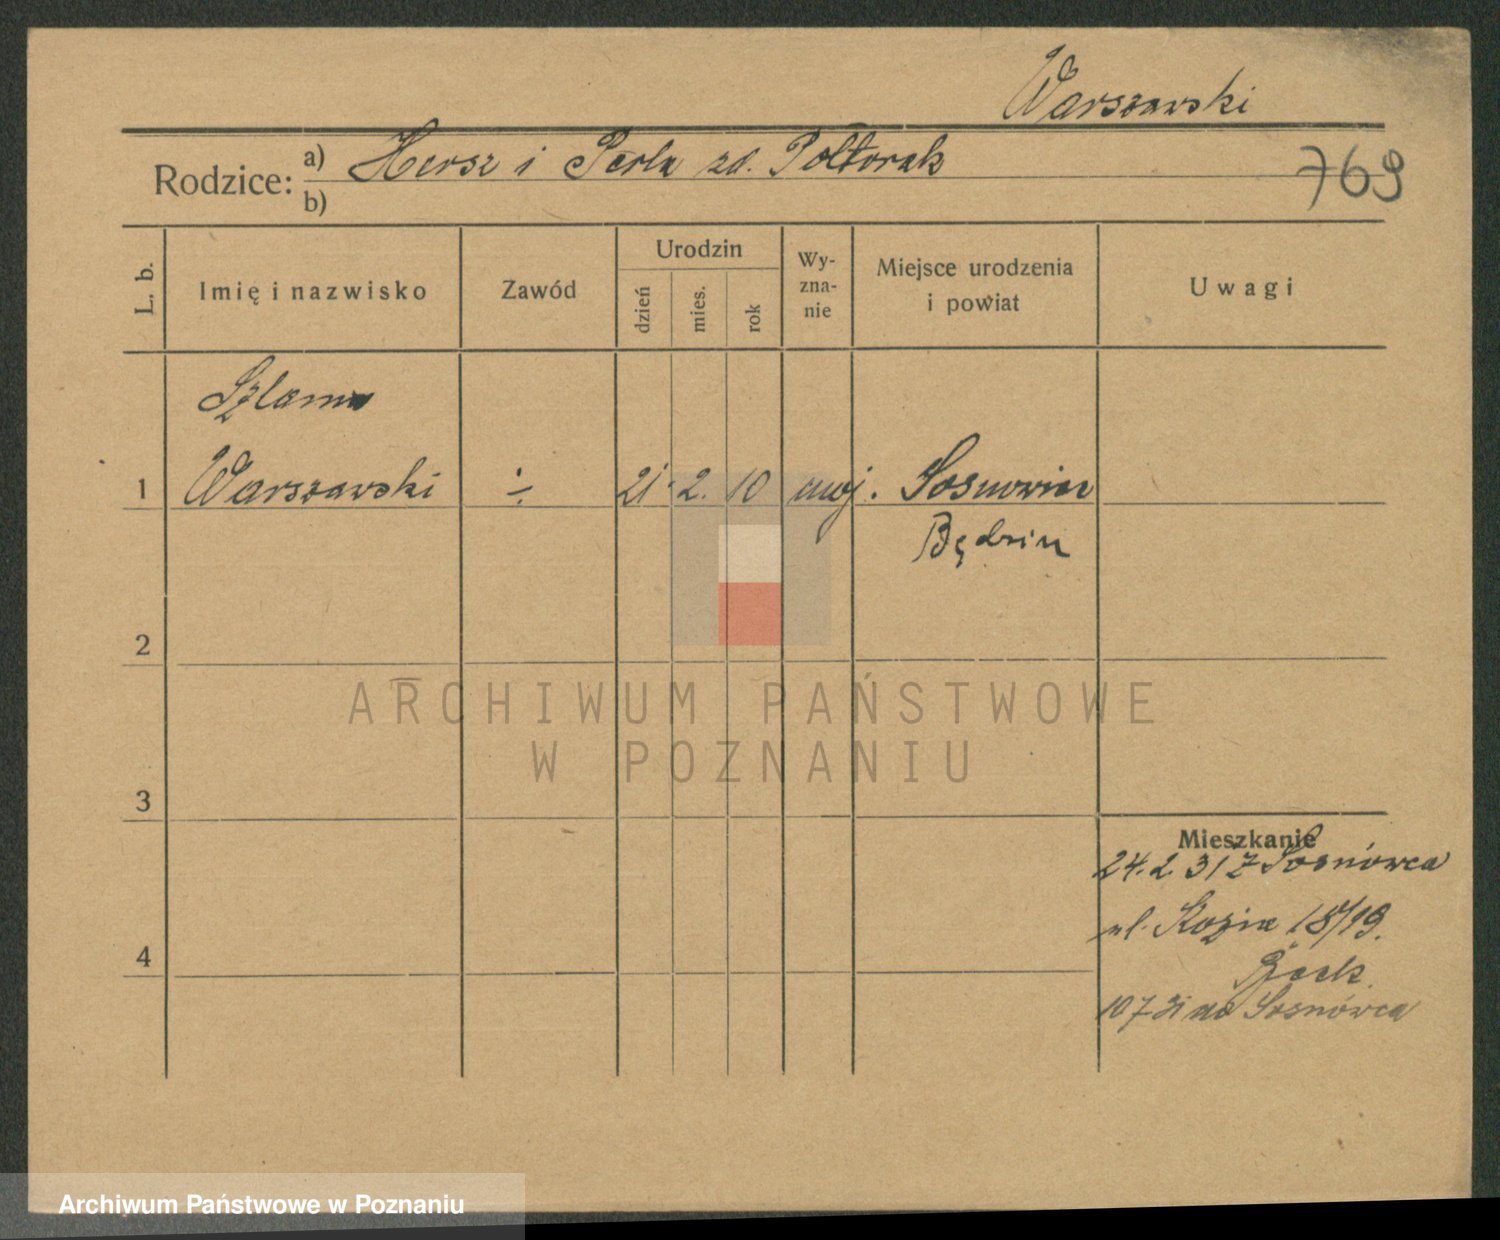 Warszawski
Rodzice: a) Hersz i Perla zd. Połtorak
b)
769
L. b.
Imię i nazwisko
Zawód
Urodzin
dzień
mies.
rok
Wy-
zna-
nie
Miejsce urodzenia
i powiat
Uwagi
Szlama
1 Warszawski ÷ 21. 2. 10 moj. Sosnowiec
Będzin
2
3
4
Mieszkanie
24.2.31 z Sosnówca
ul. Kozia 18/19.
10 7 31 do Sosnówca
ARCHIWUM PAŃSTWOWE
W POZNANIU
Archiwum Państwowe w Poznaniu